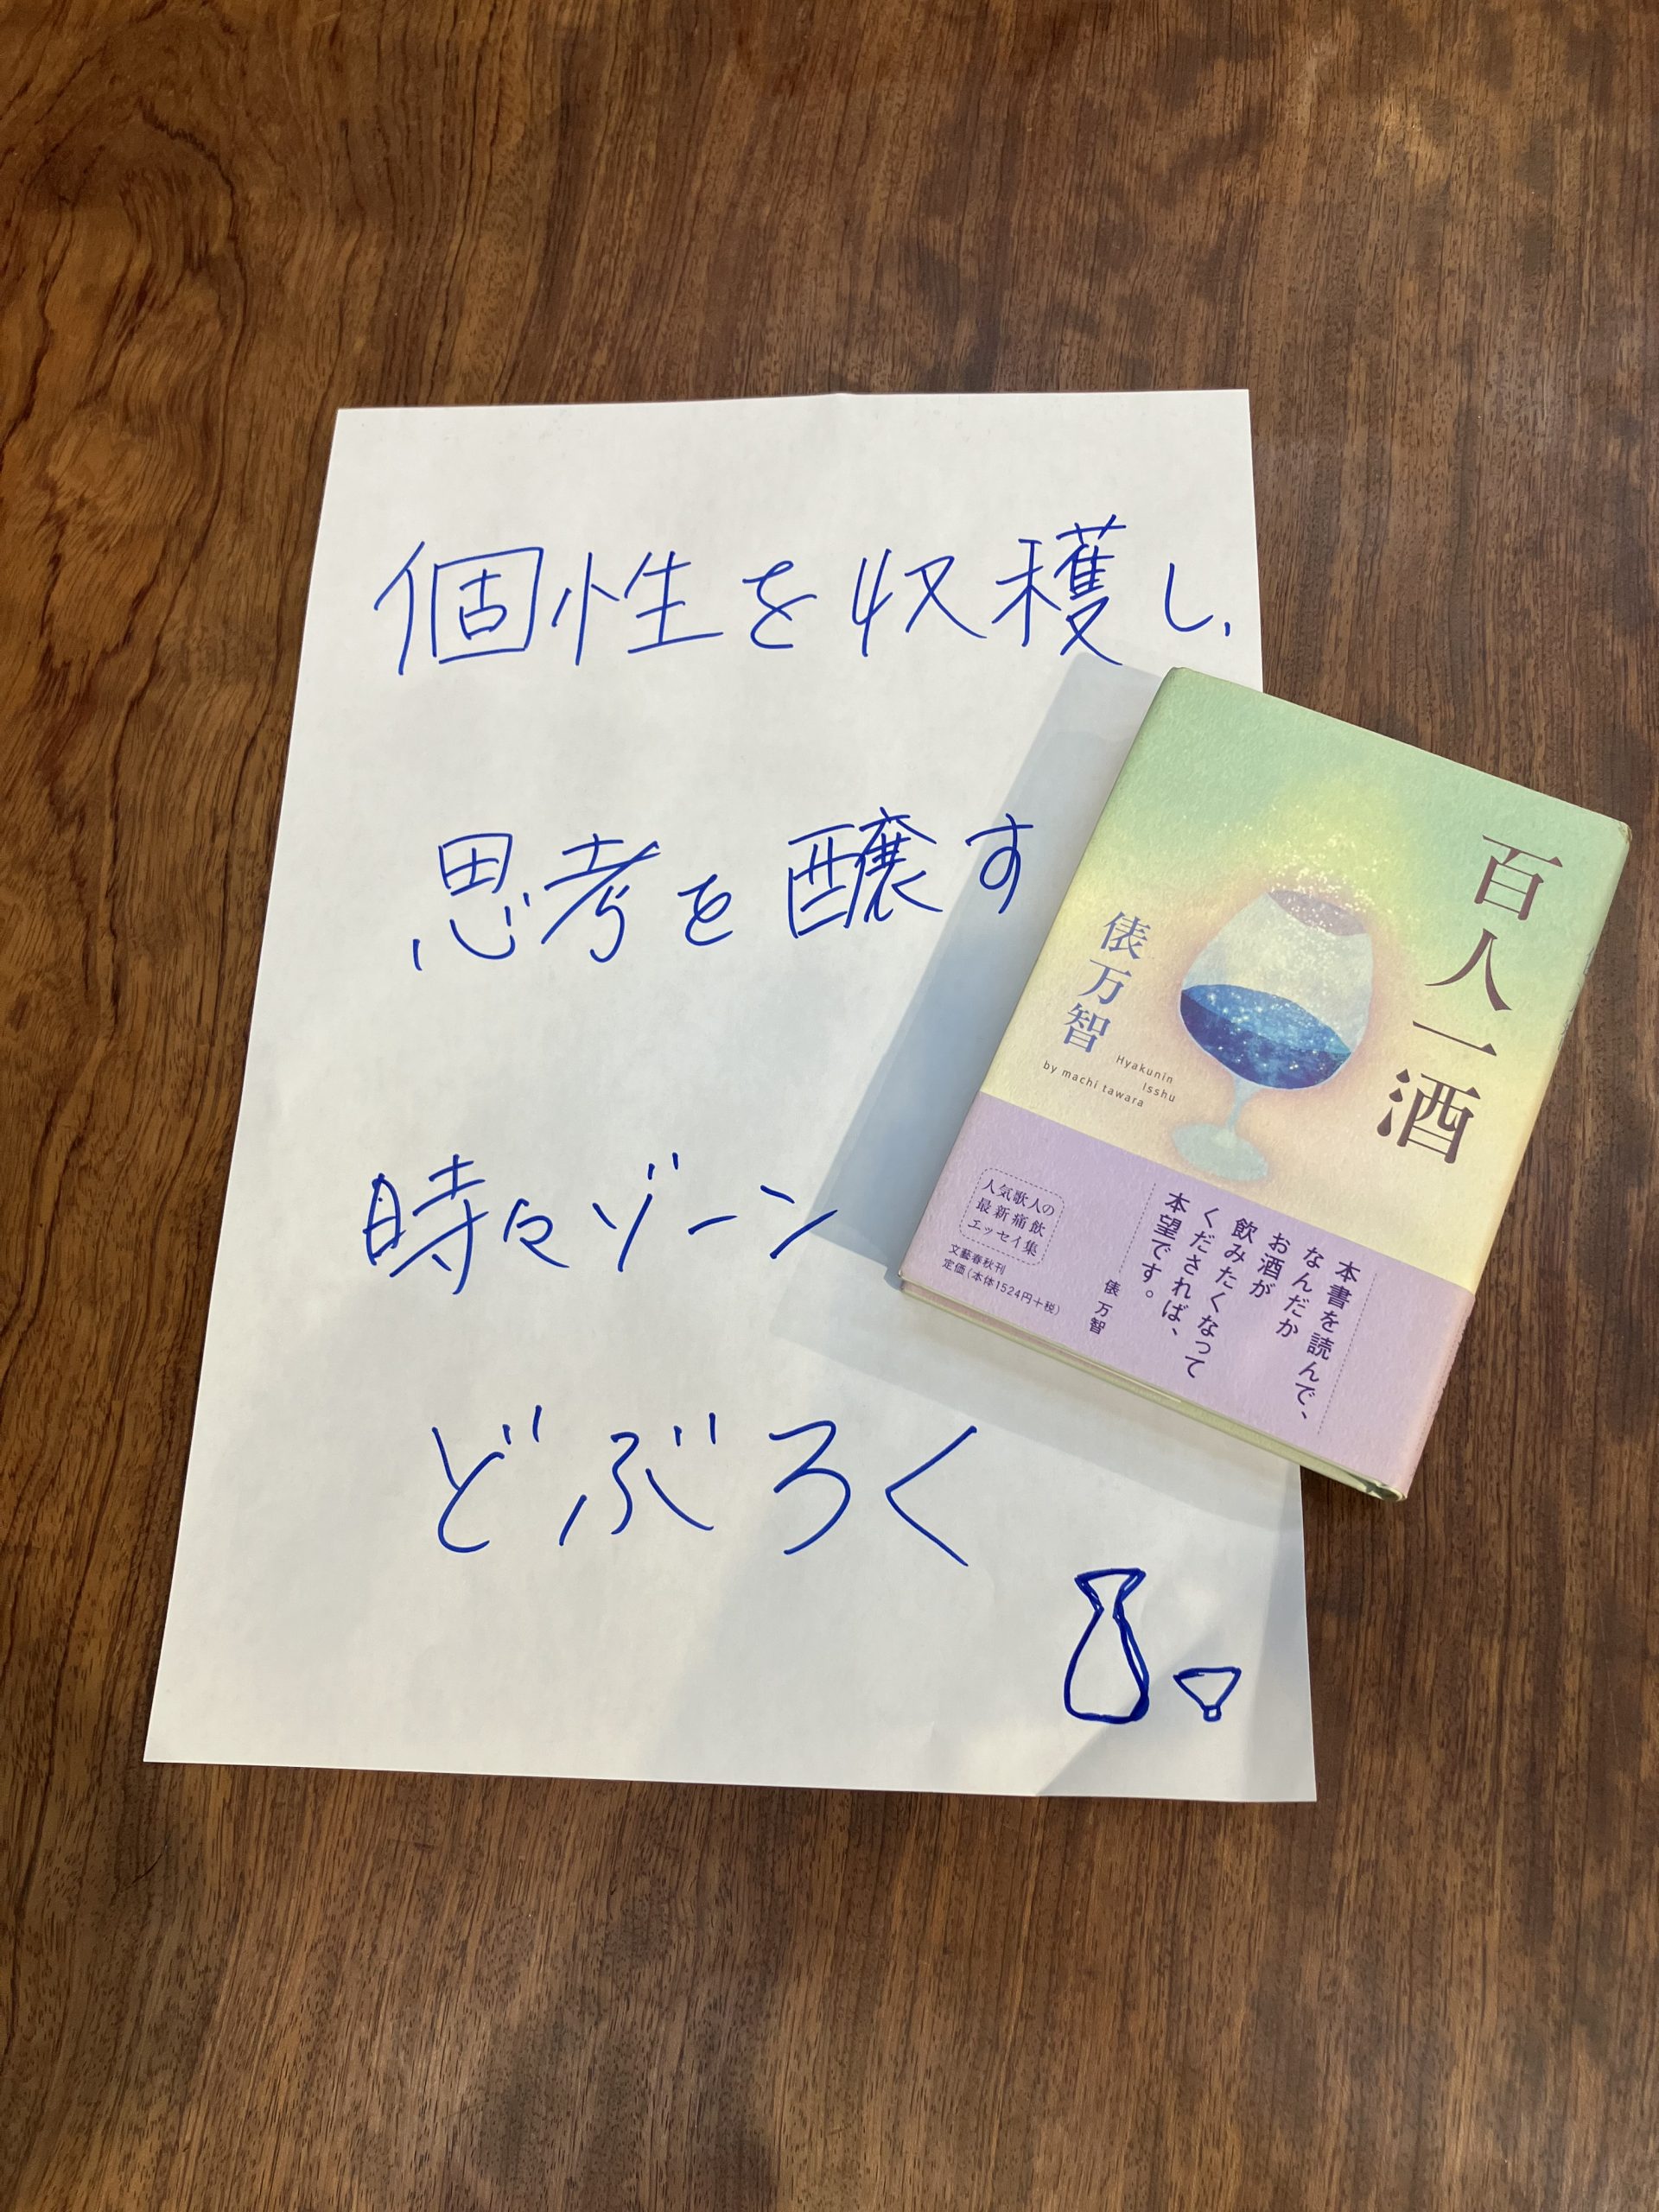 個性を収穫し、
思考を醸す
時々ゾーン
どぶろく
百人一酒
俵万智
Hyakunin
Isshu
by machi tawara
本書を読んで、
なんだか
お酒が
飲みたくなって
くだされば、
本望です。
俵万智
人気歌人の
最新痛飲
エッセイ集
文藝春秋刊
定価(本体1524円+税)